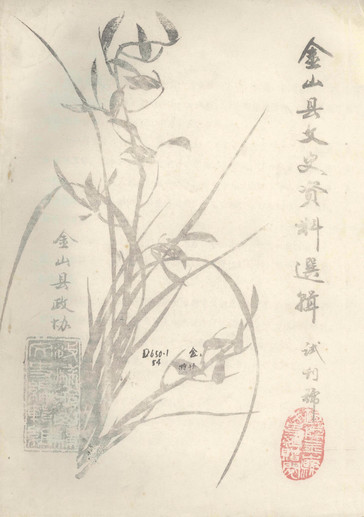 金山县文史資料選輯 试刊号
金山县政协
D650.1
54
金.